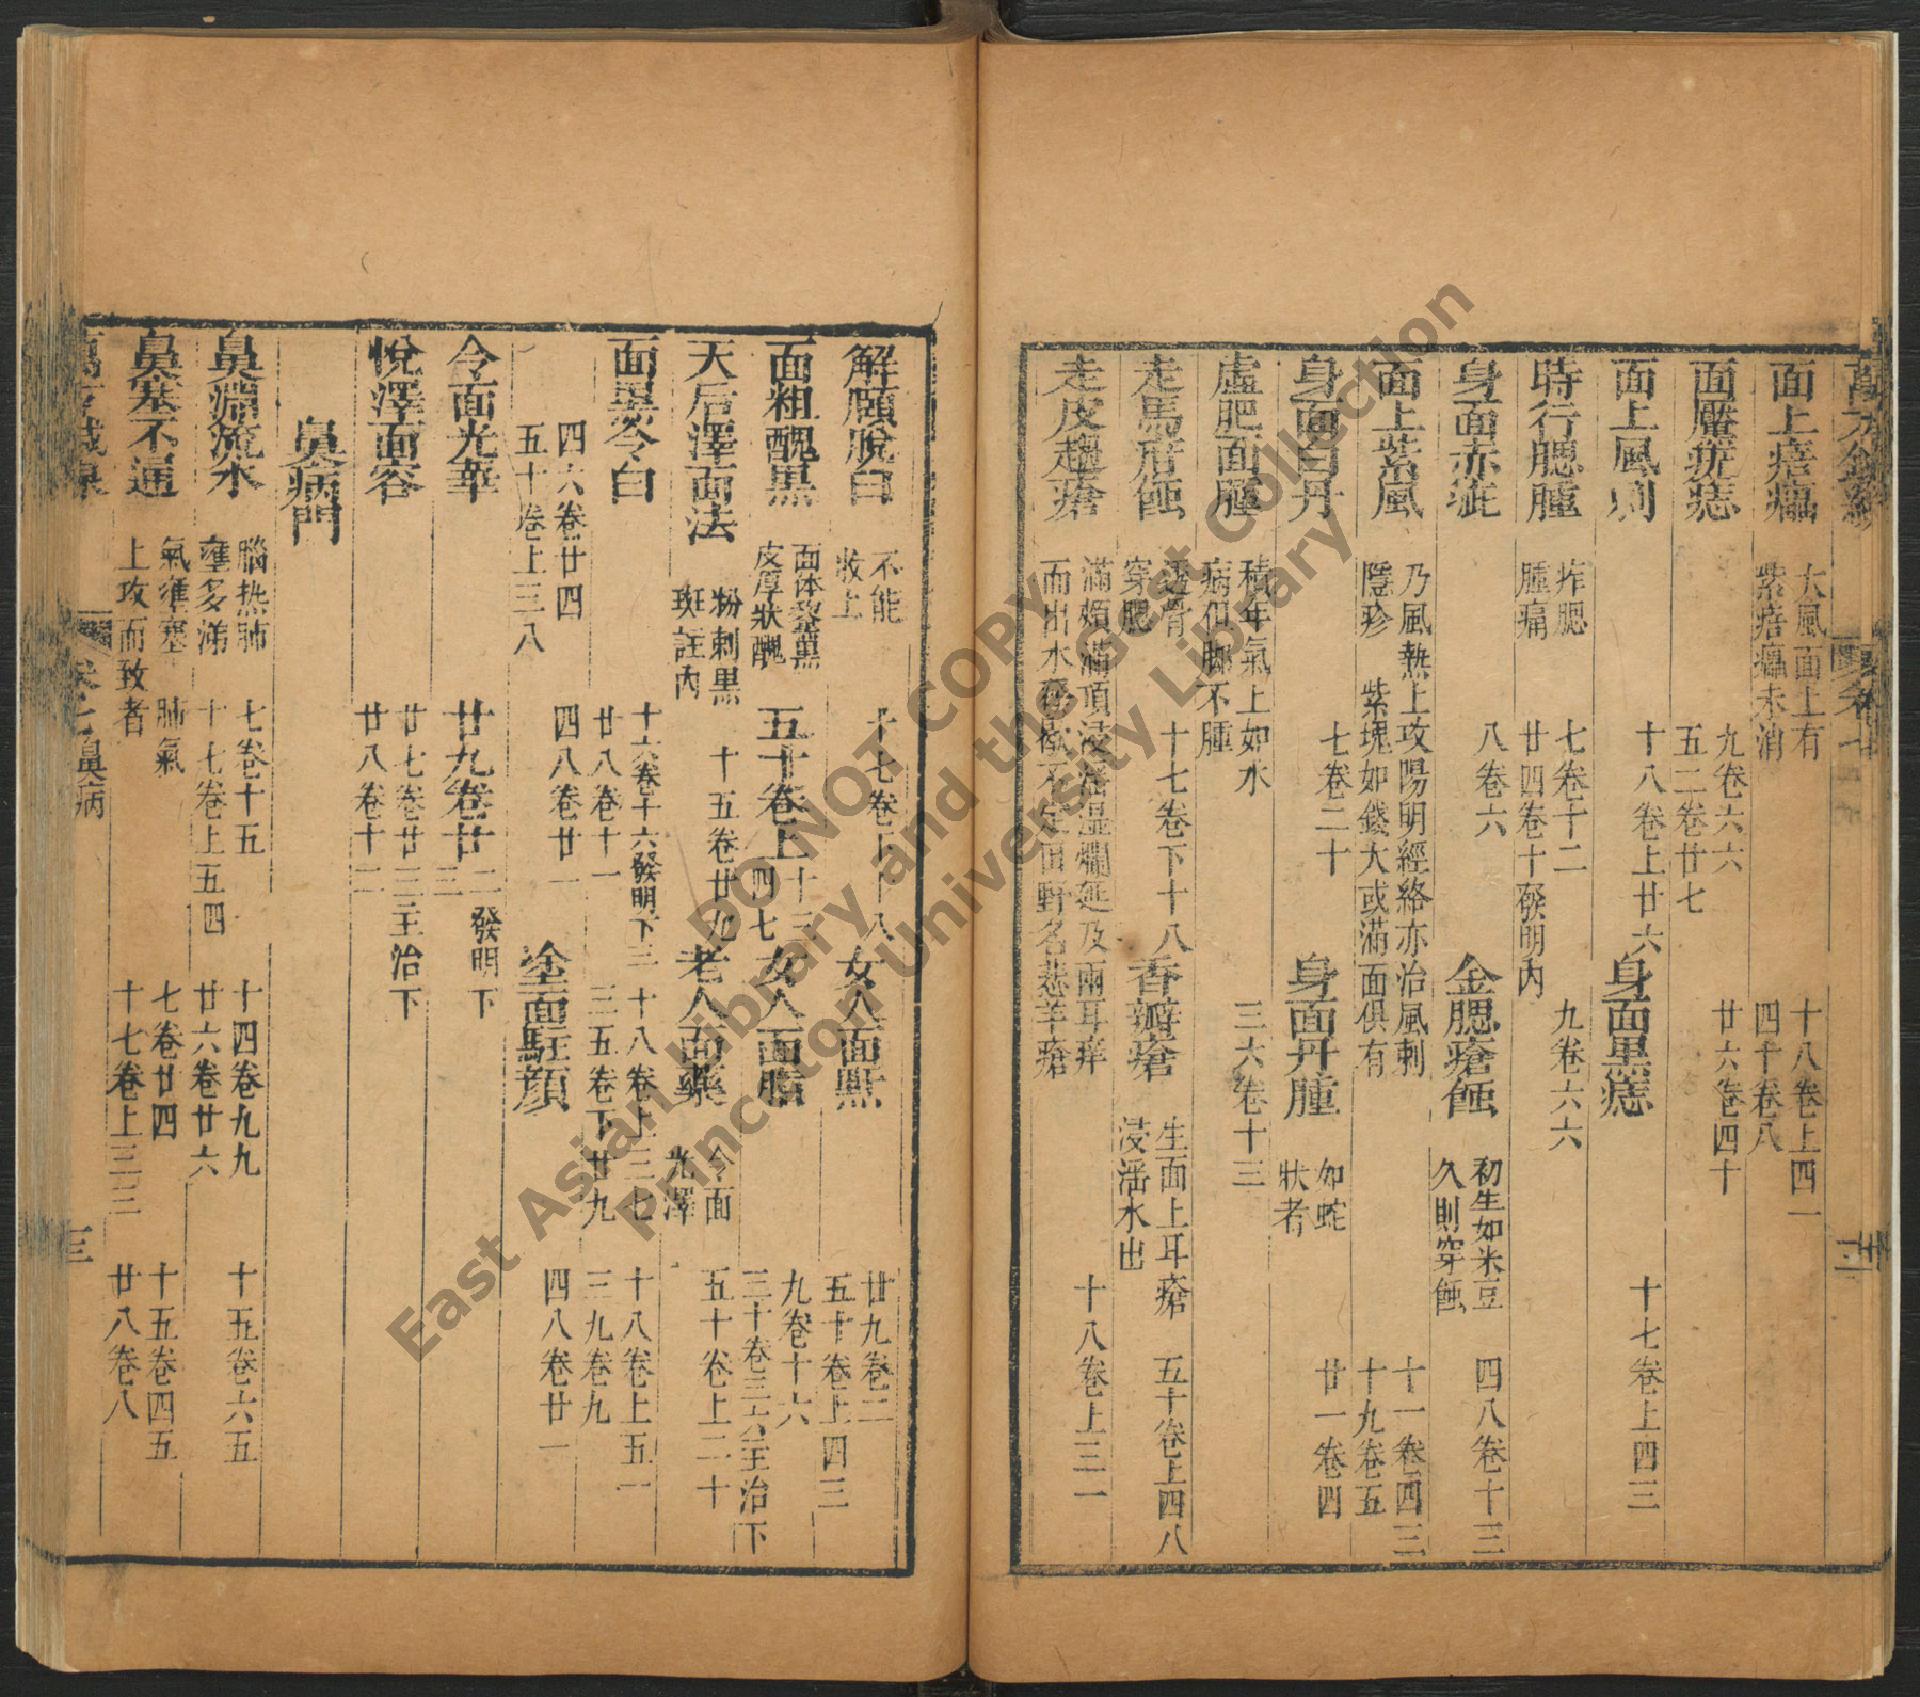 面上痦㿔 大風面上有紫痦㿔未消 十八卷上四一 四十卷八
面黶疣痣 九卷六六 五二卷廿七 廿六卷四十
面上風刺 十八卷上廿六 身面黑痣 十七卷上四三
時行腮腫 痄腮腫痛 七卷十二 廿四卷十發明內 九卷六六
身面赤疵 八卷六 金腮瘡蝕 初生如米豆久則穿蝕 四八卷十三
面上紫風 乃風熱上攻陽明經絡亦治風刺隱疹 紫塊如錢大或滿面俱有 十一卷四三 十九卷五
身面白丹 七卷二十 身面丹腫 如蛇狀者 廿一卷四
虛肥面腫 積年氣上如水病但脚不腫 三六卷十三
走馬疳蝕 透骨穿腮 十七卷下十八 香瓣瘡 生面上耳瘡浸淫水出 五十卷上四八
走皮趨瘡 滿頰滿頂浸淫湿爛延及兩耳痒而出水 田野名悲羊瘡 十八卷上三一
解頤脫臼 不能收上 十七卷下十八 女人面䵟 廿九卷二 五十卷上四三
面粗醜黑 面体黎黑皮厚狀醜 五十卷上 四七 女人面脂 九卷十六 三十卷三六主治下
天后澤面法 粉刺黑斑註內 十五卷廿九 老人面藥 令面光澤 五十卷上二十
面黑令白 十六卷十六發明下三 廿八卷十一 十八卷上三七 三五卷下廿九 十八卷上五一 三九卷九
四六卷廿四 五十卷上三八 四八卷廿一 塗面駐顏 四八卷廿一
令面光華 廿九卷廿二發明下
悅澤面容 廿七卷廿三主治下 廿八卷十二
鼻病門
鼻淵流水 腦热肺壅多涕 七卷十五 十七卷上五四 十四卷九九 廿六卷廿六 十五卷六五
鼻塞不通 氣壅塞 肺氣上攻而致者 七卷廿四 十七卷上三三 十五卷四五 廿八卷八
鼻病
East Asian Library and the Gest Collection
DO NOT COPY
Princeton University Library